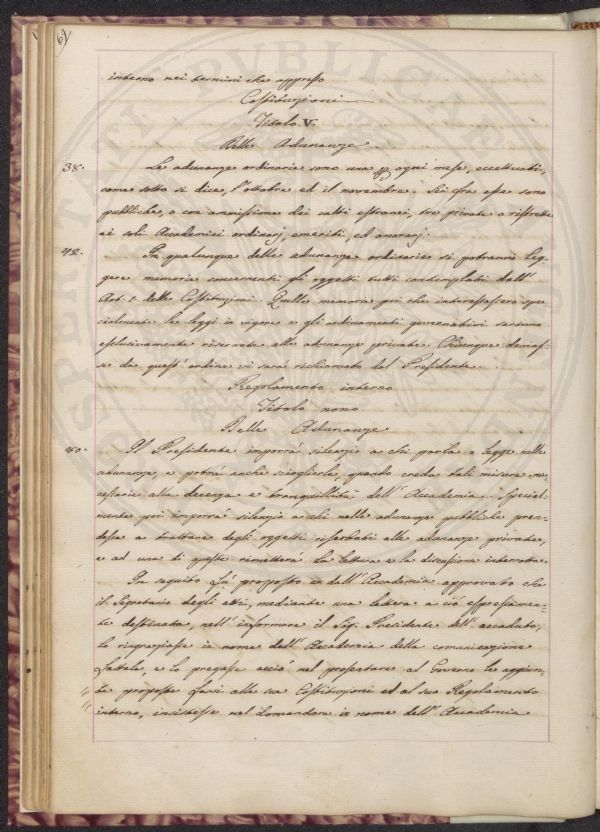 interno nei termini che appresso
Costituzioni
Titolo V.
Delle Adunanze
38. Le adunanze ordinarie sono una per ogni mese, eccettuati,
come sotto si dice, l'ottobre ed il novembre. Sei fra esse sono
pubbliche, o con ammissione dei culti estranei, tre private o ristrette
ai soli Accademici ordinarj, emeriti, ed onorarj.
42. In qualunque delle adunanze ordinarie si potranno leg-
gere memorie concernenti gli oggetti tutti contemplati dall'
Art. 1. delle Costituzioni. Quelle memorie poi che interessassero spe-
cialmente le leggi in vigore e gli ordinamenti governativi saranno
esclusivamente riservate alle adunanze private. Chiunque deviasse
se da quest'ordine vi sarà richiamato dal Presidente.
Regolamento interno
Titolo nono
Delle Adunanze
60. Il Presidente imporrà silenzio a chi parla o legge nelle
adunanze, e potrà anche scioglierle, quando creda tali misure ne-
cessarie alla decenza e tranquillità dell'Accademia. Special-
mente poi imporrà silenzio a chi nelle adunanze pubbliche pren-
desse a trattare degli oggetti riserbati alle adunanze private,
e ad una di queste rimetterà la lettura e la discussione interrotta.
In seguito fu proposto e dall'Accademia approvato che
il Segretario degli atti, mediante una lettera a ciò espressamen-
te destinata, nell'informare il Sig. Presidente dell'accaduto,
lo ringraziasse in nome dell'Accademia della comunicazione
fattale, e lo pregasse acciò nel presentare al Governo le aggiun-
te proposte farsi alle sue Costituzioni ed al suo Regolamento
interno, insistesse nel domandare in nome dell'Accademia